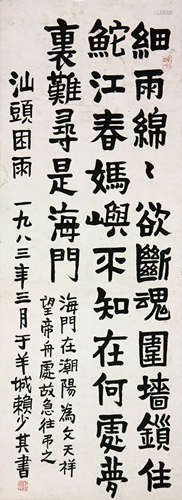 細雨綿〻欲斷魂圍墻鎖住
鮀江春媽嶼不知在何處夢
裏難尋是海門
海門在潮陽為文天祥
望帝舟處故急往弔之
汕頭困雨 一九八三年三月于羊城賴少其書